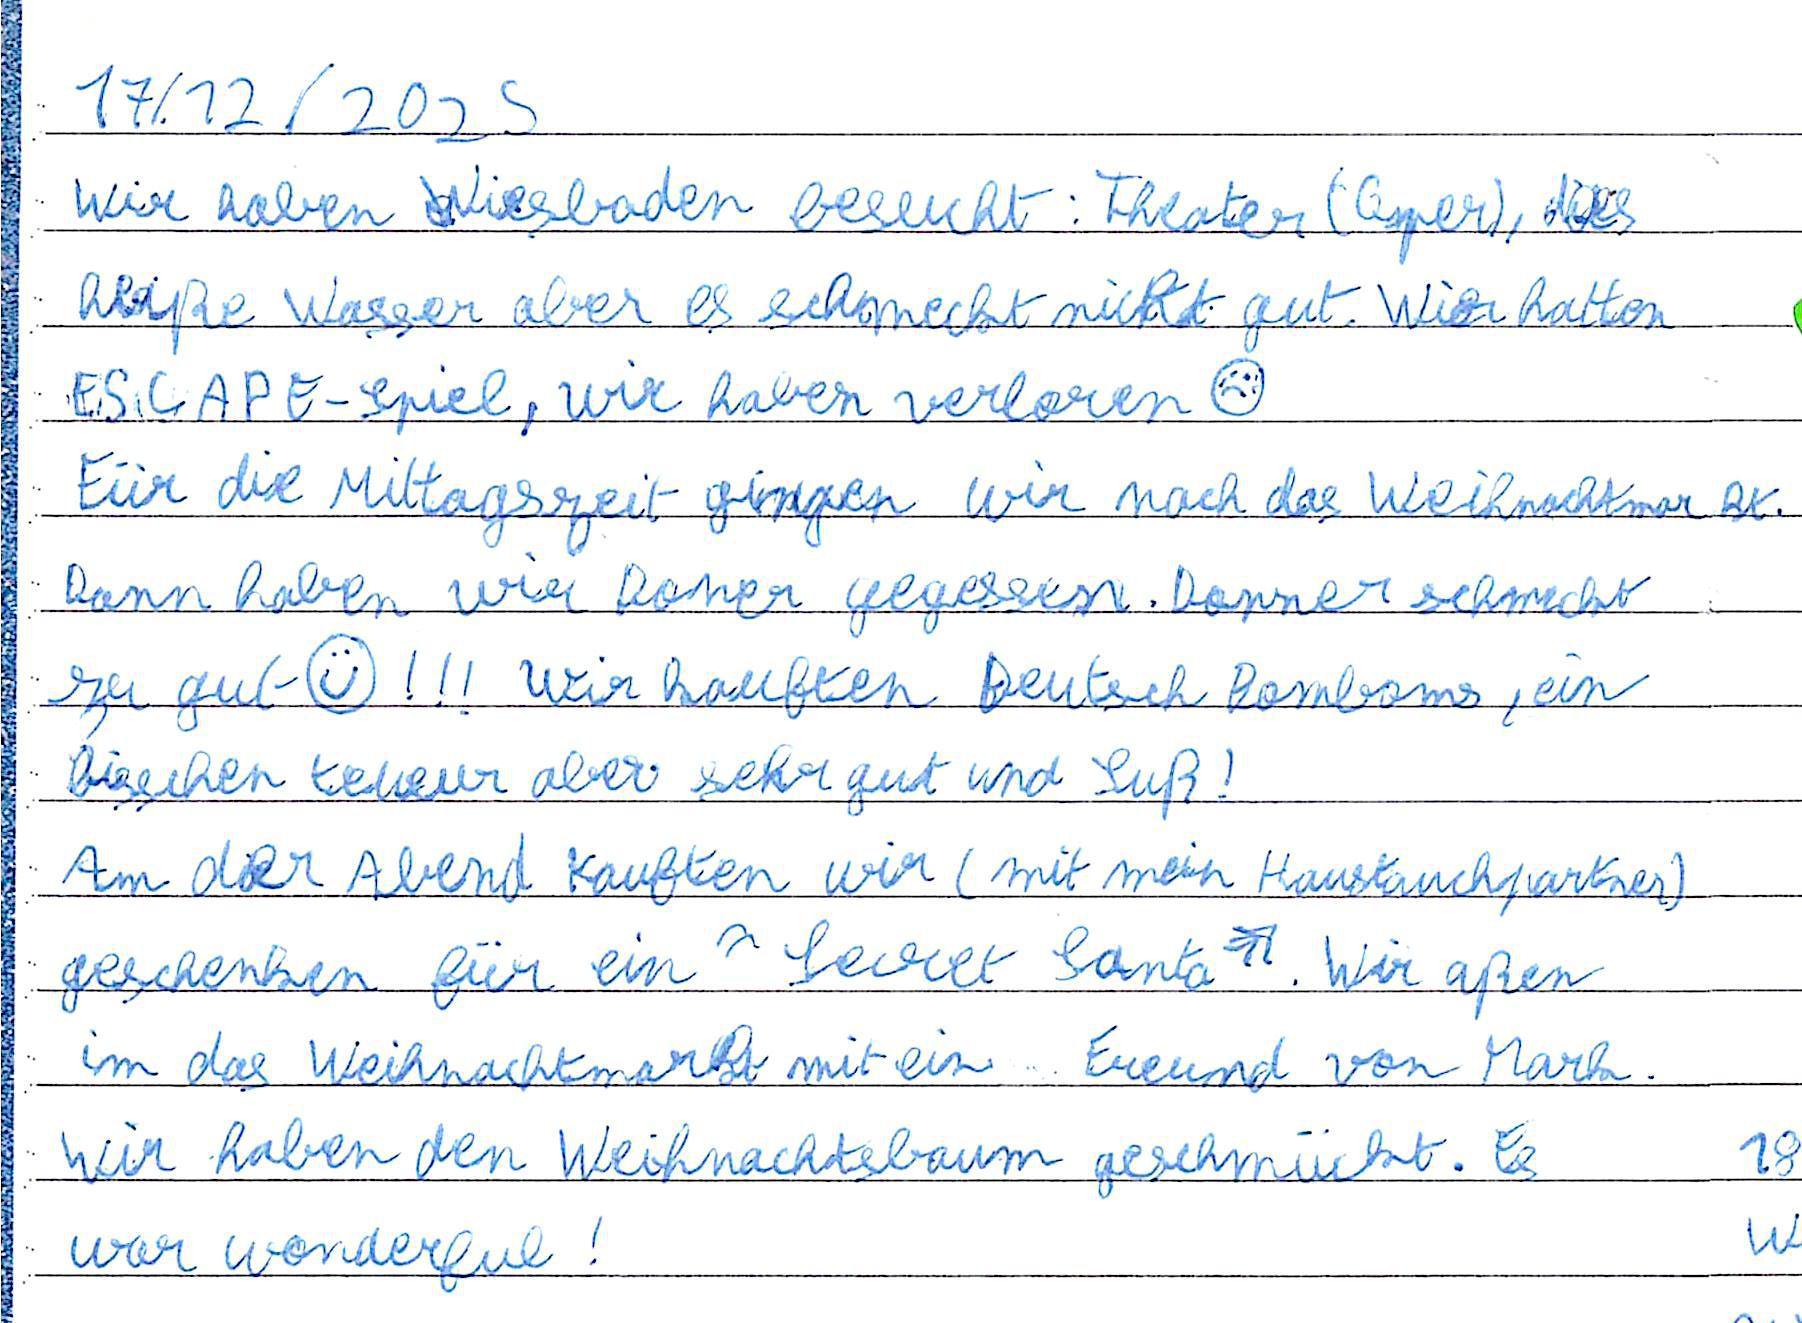 17/12/2025
Wir haben Wiesbaden besucht : Theater (Oper), das
heiße Wasser aber es schmeckt nicht gut. Wir hatten
ESCAPE-Spiel, wir haben verloren ☹
Für die Mittagszeit gingen wir nach das Weihnachtmarkt.
Dann haben wir Doner gegessen. Donner schmeckt
zu gut ☺ !!! Wir kauften Deutsch Bomboms, ein
bisschen teueur aber sehr gut und Suß !
Am der Abend kauften wir ( mit mein Haustauchpartner)
geschenken für ein " Secret Santa ". Wir aßen
im das Weihnachtmarkt mit ein Freund von Mark.
Wir haben den Weihnachtsbaum geschmückt. Es
war wonderful !
18
W